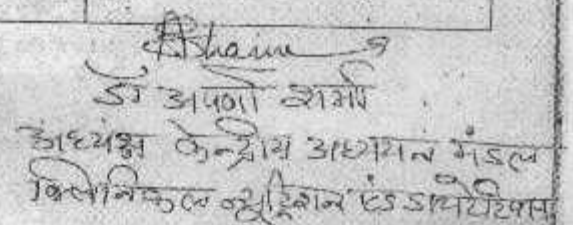 AShame
डॉ अपर्णा शर्मा
अध्यक्ष केन्द्रीय अध्ययन मंडल
क्लिनिकल न्यूट्रिशन एंड डायटेटिक्स